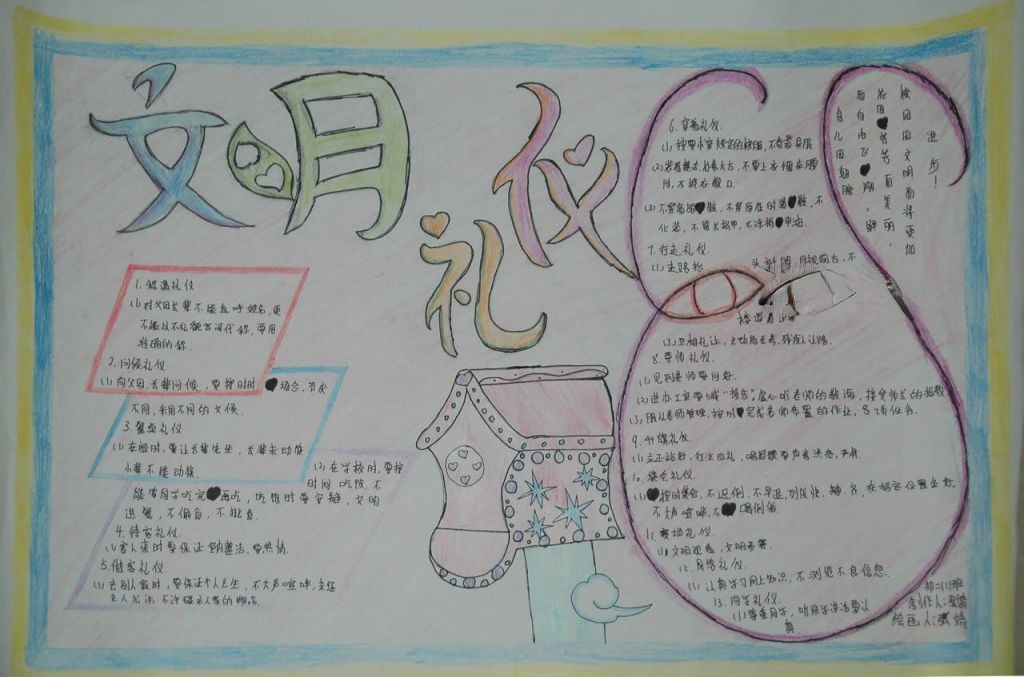 文明
礼仪
1. 称谓礼仪
(1) 对父母长辈不能直呼姓名,更
不能以不礼貌言词代称,要用
准确的称
2. 问候礼仪
(1) 向父母、长辈问候,要按时时 场合,节庆
不同,采用不同的文候.
3. 餐桌礼仪
(1) 在吃时,要让长辈先坐,长辈未动筷
小辈不能动筷.
(2) 在学校时,要按
时间 吃饭,不
能等同学吃完 再吃,吃饭时要安静,文明
进餐,不偏食,不挑食.
4. 待客礼仪.
(1) 客人来时要保证 整洁,要热情.
5. 做客礼仪.
(1) 去别人家时,要保证个人卫生,不大声喧哗,未经
主人允许不许碰主人家的物品.
6. 穿着礼仪.
(1) 按要求穿规定的校服,不奇装异服
(2) 大方,不要上衣
(3) 不穿高跟 鞋,不
化妆,不留长指甲,不涂指 甲油.
7. 行走礼仪.
(1) 走路抬
头挺胸,目视前方,不
(3) 互相礼让,主动给长者、残疾人让路.
8. 尊师礼仪.
(1) 见到老师要问好.
(2) 进办工室要喊“报告”,虚心听老师的教诲,接受师长的指教
(3) 服从老师管理,按时 完成老师布置的作业,各项任务.
9. 升旗礼仪.
(1) 立正站好,行注目礼,唱国歌要声音洪亮,
10. 集会礼仪.
(1) 按时集合,不迟到,不早退,列队快、静、齐,在指定位置坐好.
不大声喧哗,不
11. 赛场礼仪.
(1) 文明观看,文明参赛.
12. 网络礼仪.
(1) 认真学习网上知识,不浏览不良信息.
13. 同学礼仪.
(1) 尊重同学,听同学说话要认
真.
校园因文明而将更加
进步!
花因 芬芳而美丽,
而自由飞 翔,
鸟儿因翅膀
制作人:
绘画人: